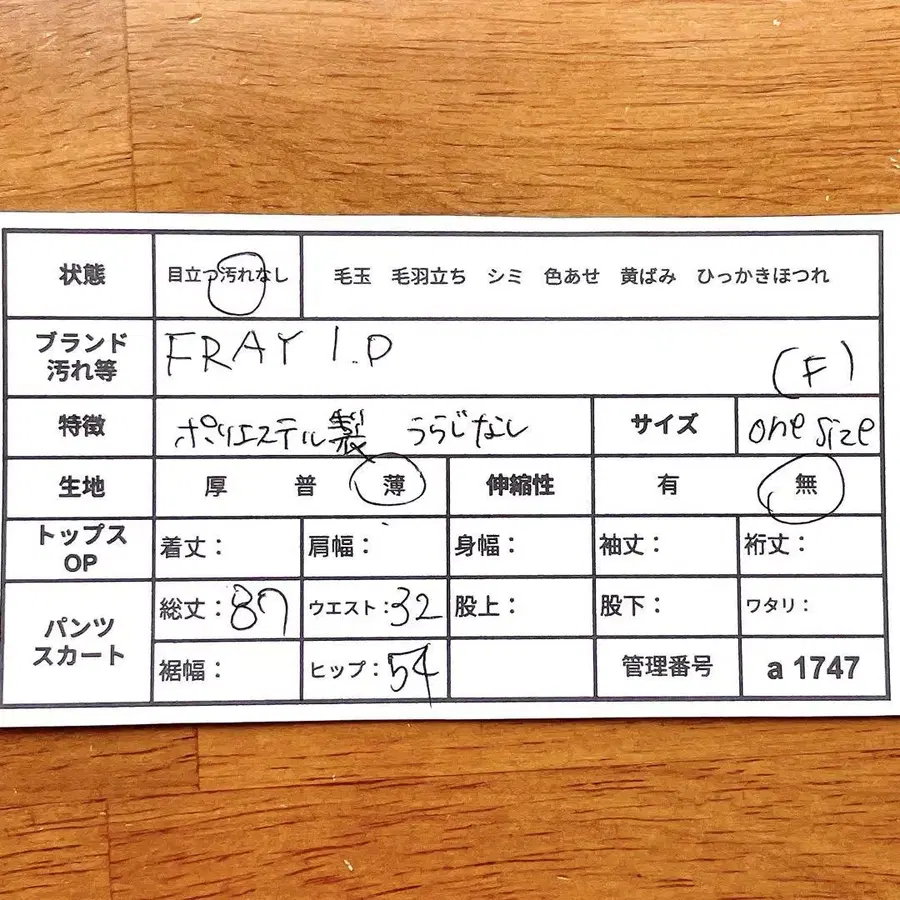 状態 目立つ汚れなし 毛玉 毛羽立ち シミ 色あせ 黄ばみ ひっかきほつれ
ブランド
汚れ等
FRAY I.D
(F)
特徴 ポリエステル製 うらじなし サイズ one size
生地 厚 普 薄 伸縮性 有 無
トップス
OP
着丈: 肩幅: 身幅: 袖丈: 裄丈:
パンツ
スカート
総丈:87 ウエスト:32 股上: 股下: ワタリ:
裾幅: ヒップ:54 管理番号 a 1747